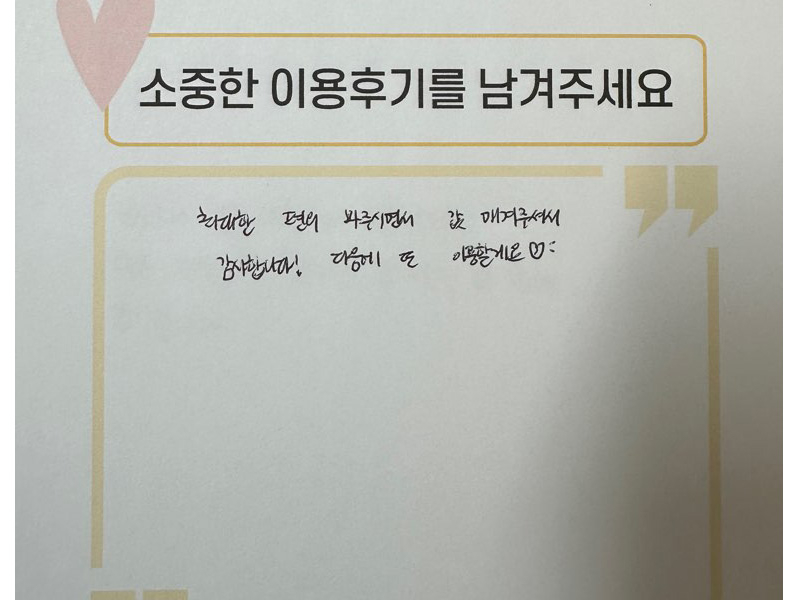 소중한 이용후기를 남겨주세요
최대한 편의 봐주시면서 값 매겨주셔서
감사합니다! 다음에 또 이용할게요♡